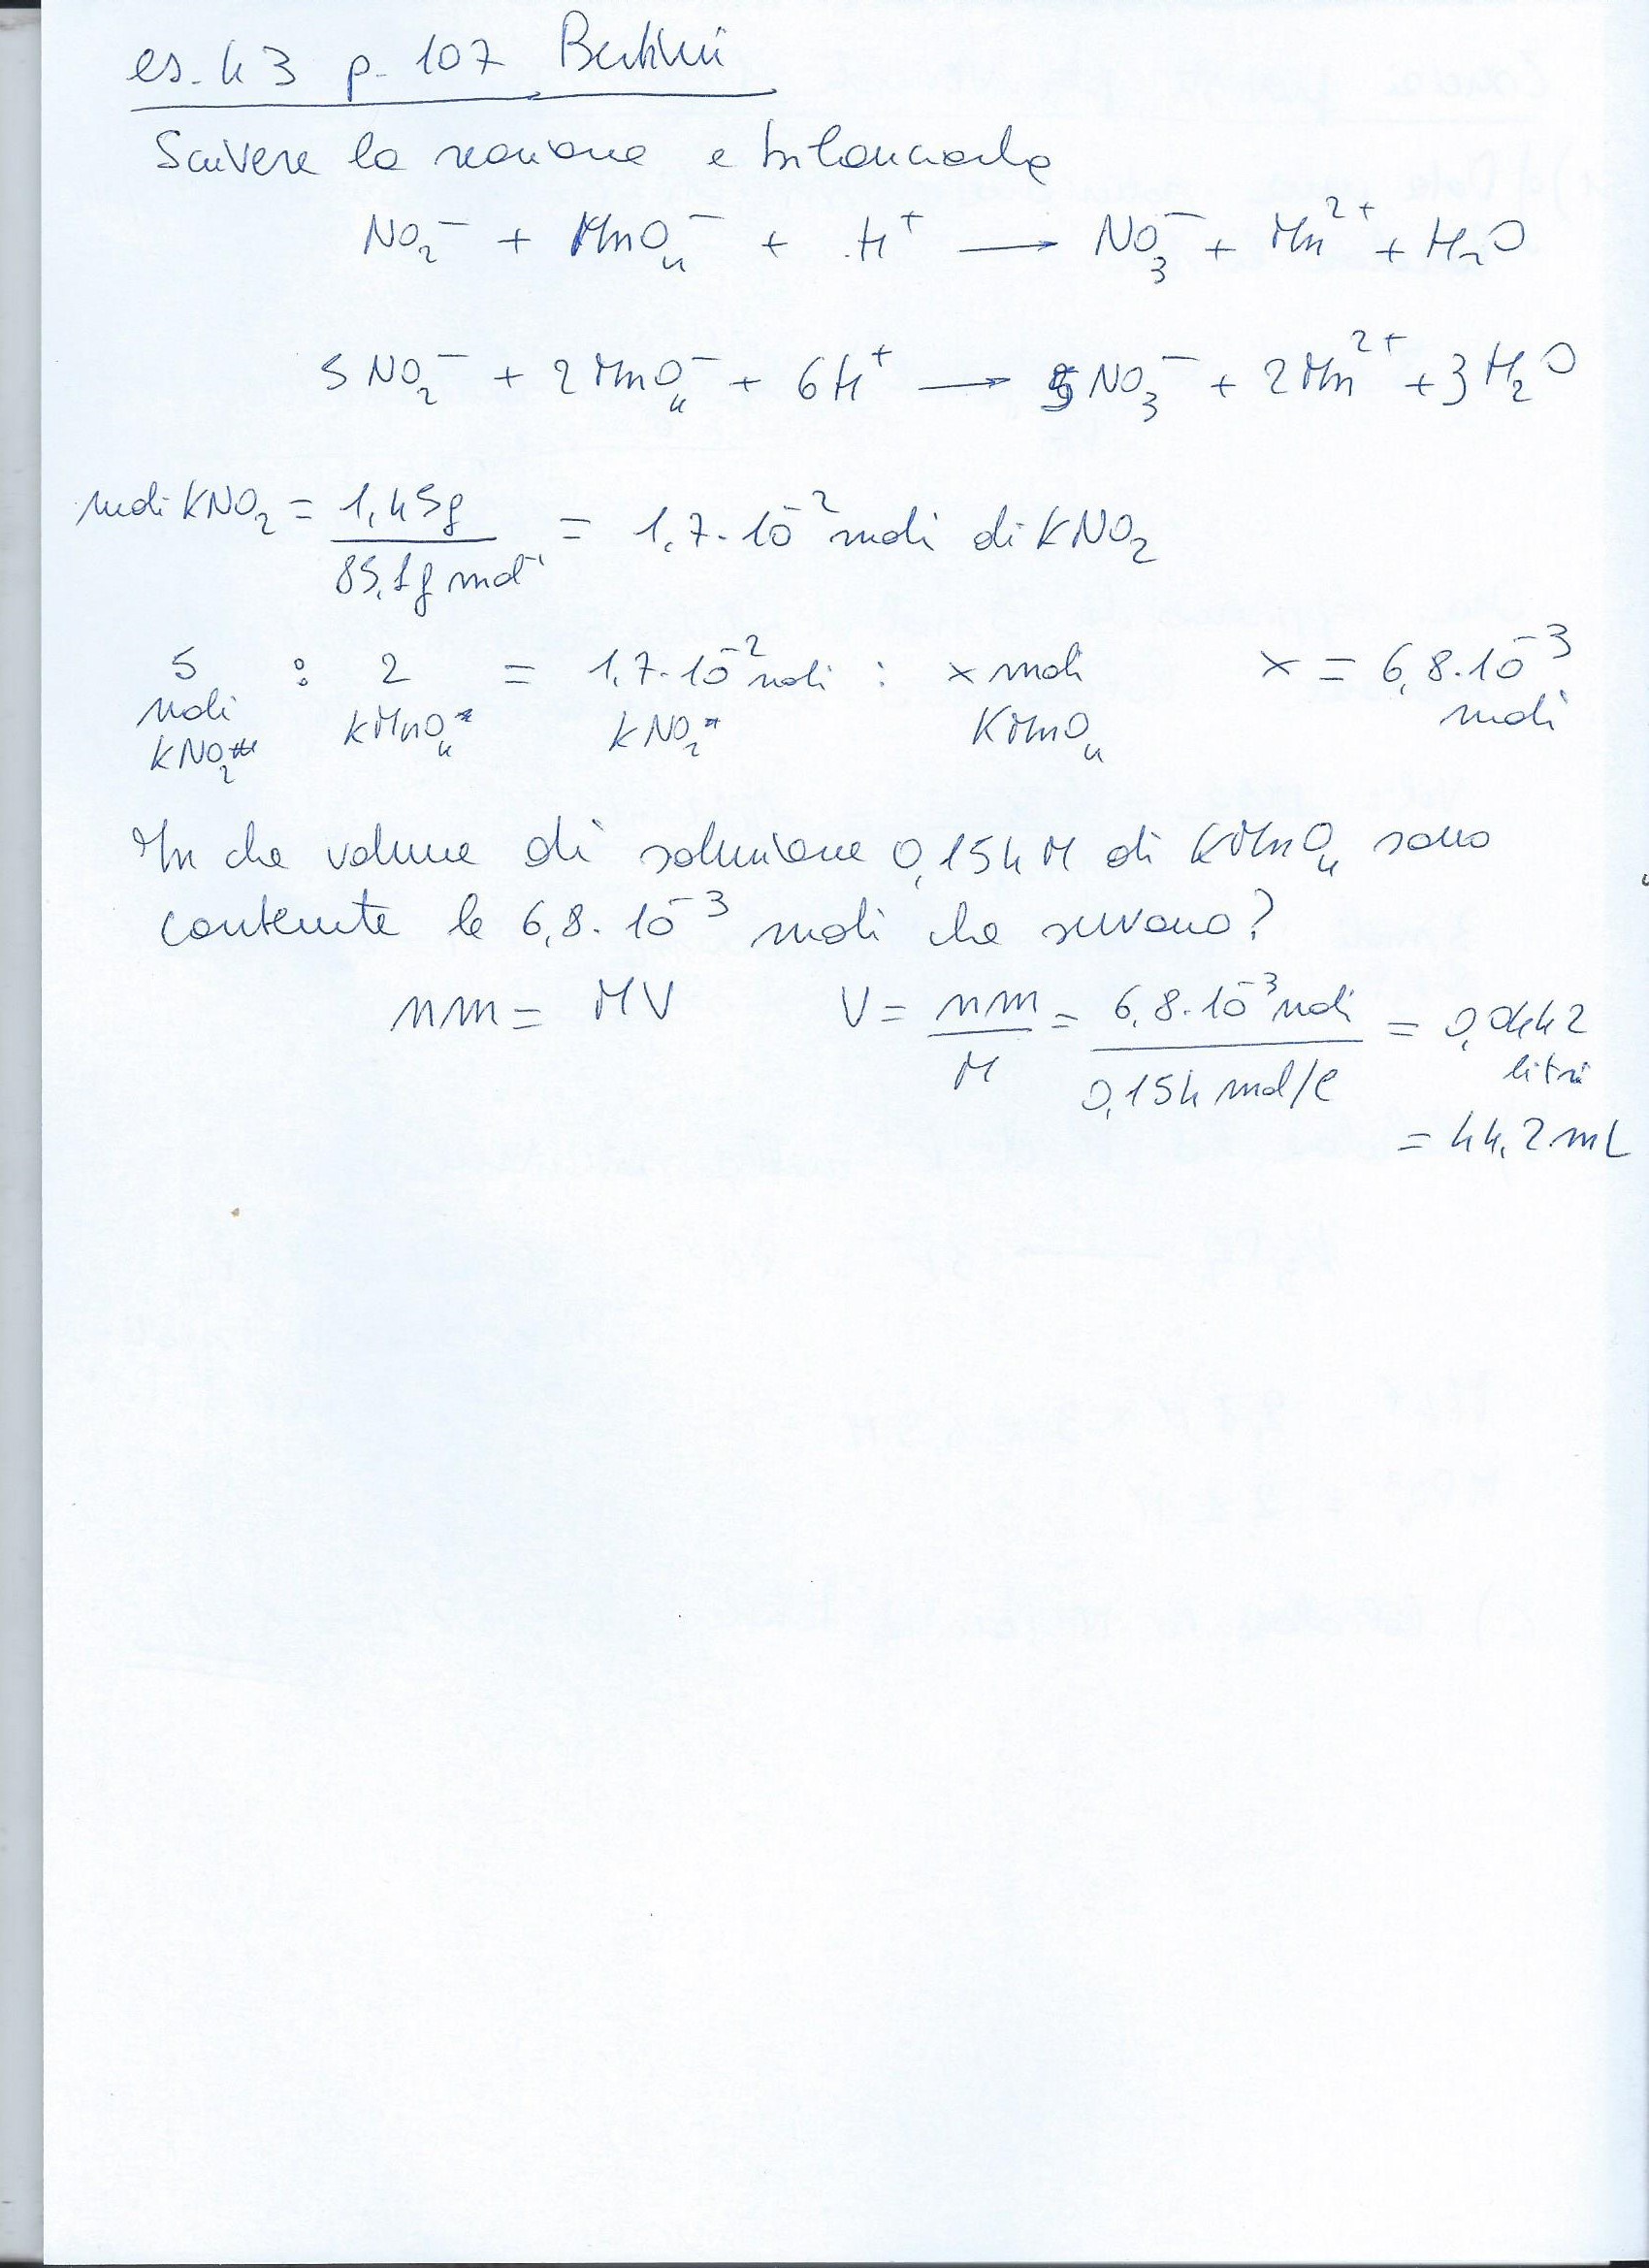 es. 43 p. 107 Bertini
Scrivere la reazione e bilanciarla
NO₂⁻ + MnO₄⁻ + H⁺ → NO₃⁻ + Mn²⁺ + H₂O
5 NO₂⁻ + 2 MnO₄⁻ + 6H⁺ → 5 NO₃⁻ + 2 Mn²⁺ + 3 H₂O
moli KNO₂ = 1,45g / 85,1 g mol⁻¹ = 1,7·10⁻² moli di KNO₂
5 : 2 = 1,7·10⁻² moli : x moli x = 6,8·10⁻³
moli KMnO₄ KNO₂ KMnO₄ moli
KNO₂
In che volume di soluzione 0,154 M di KMnO₄ sono
contenute le 6,8·10⁻³ moli che servono?
nm = MV V = nm / M = 6,8·10⁻³ moli / 0,154 mol/l = 0,0442
litri
= 44,2 mL